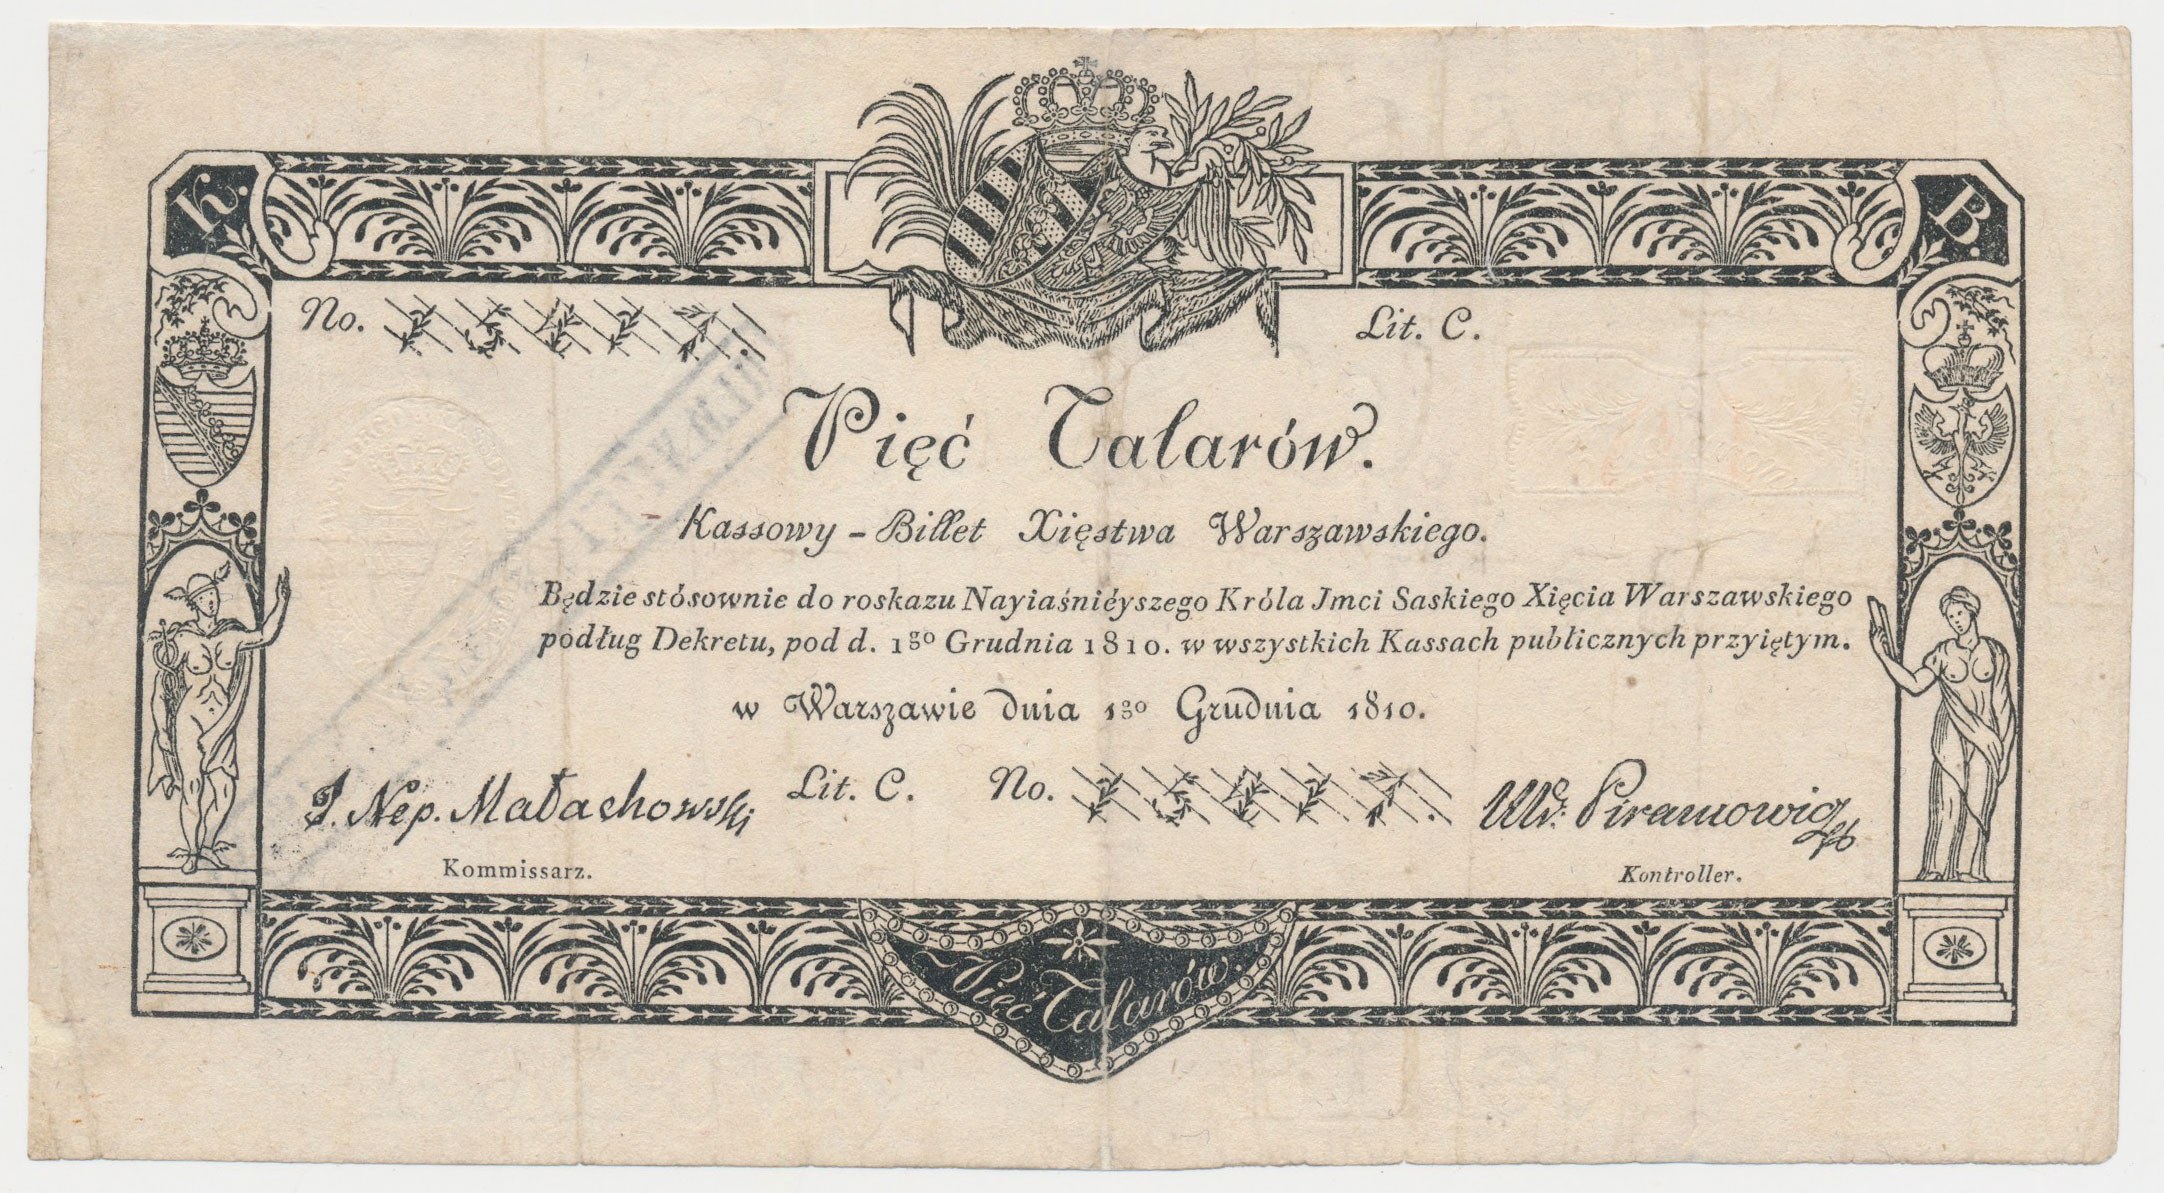 K. B.
No. Lit. C.
Pięć Talarów.
Kassowy - Billet Xięstwa Warszawskiego.
Będzie stósownie do roskazu Nayiaśniéyszego Króla Jmci Saskiego Xięcia Warszawskiego
podług Dekretu, pod d. 1go Grudnia 1810. w wszystkich Kassach publicznych przyiętym.
w Warszawie dnia 1go Grudnia 1810.
J. Nep. Małachowski Lit. C. No.
Kommissarz. Kontroller.
Pięć Talarów.